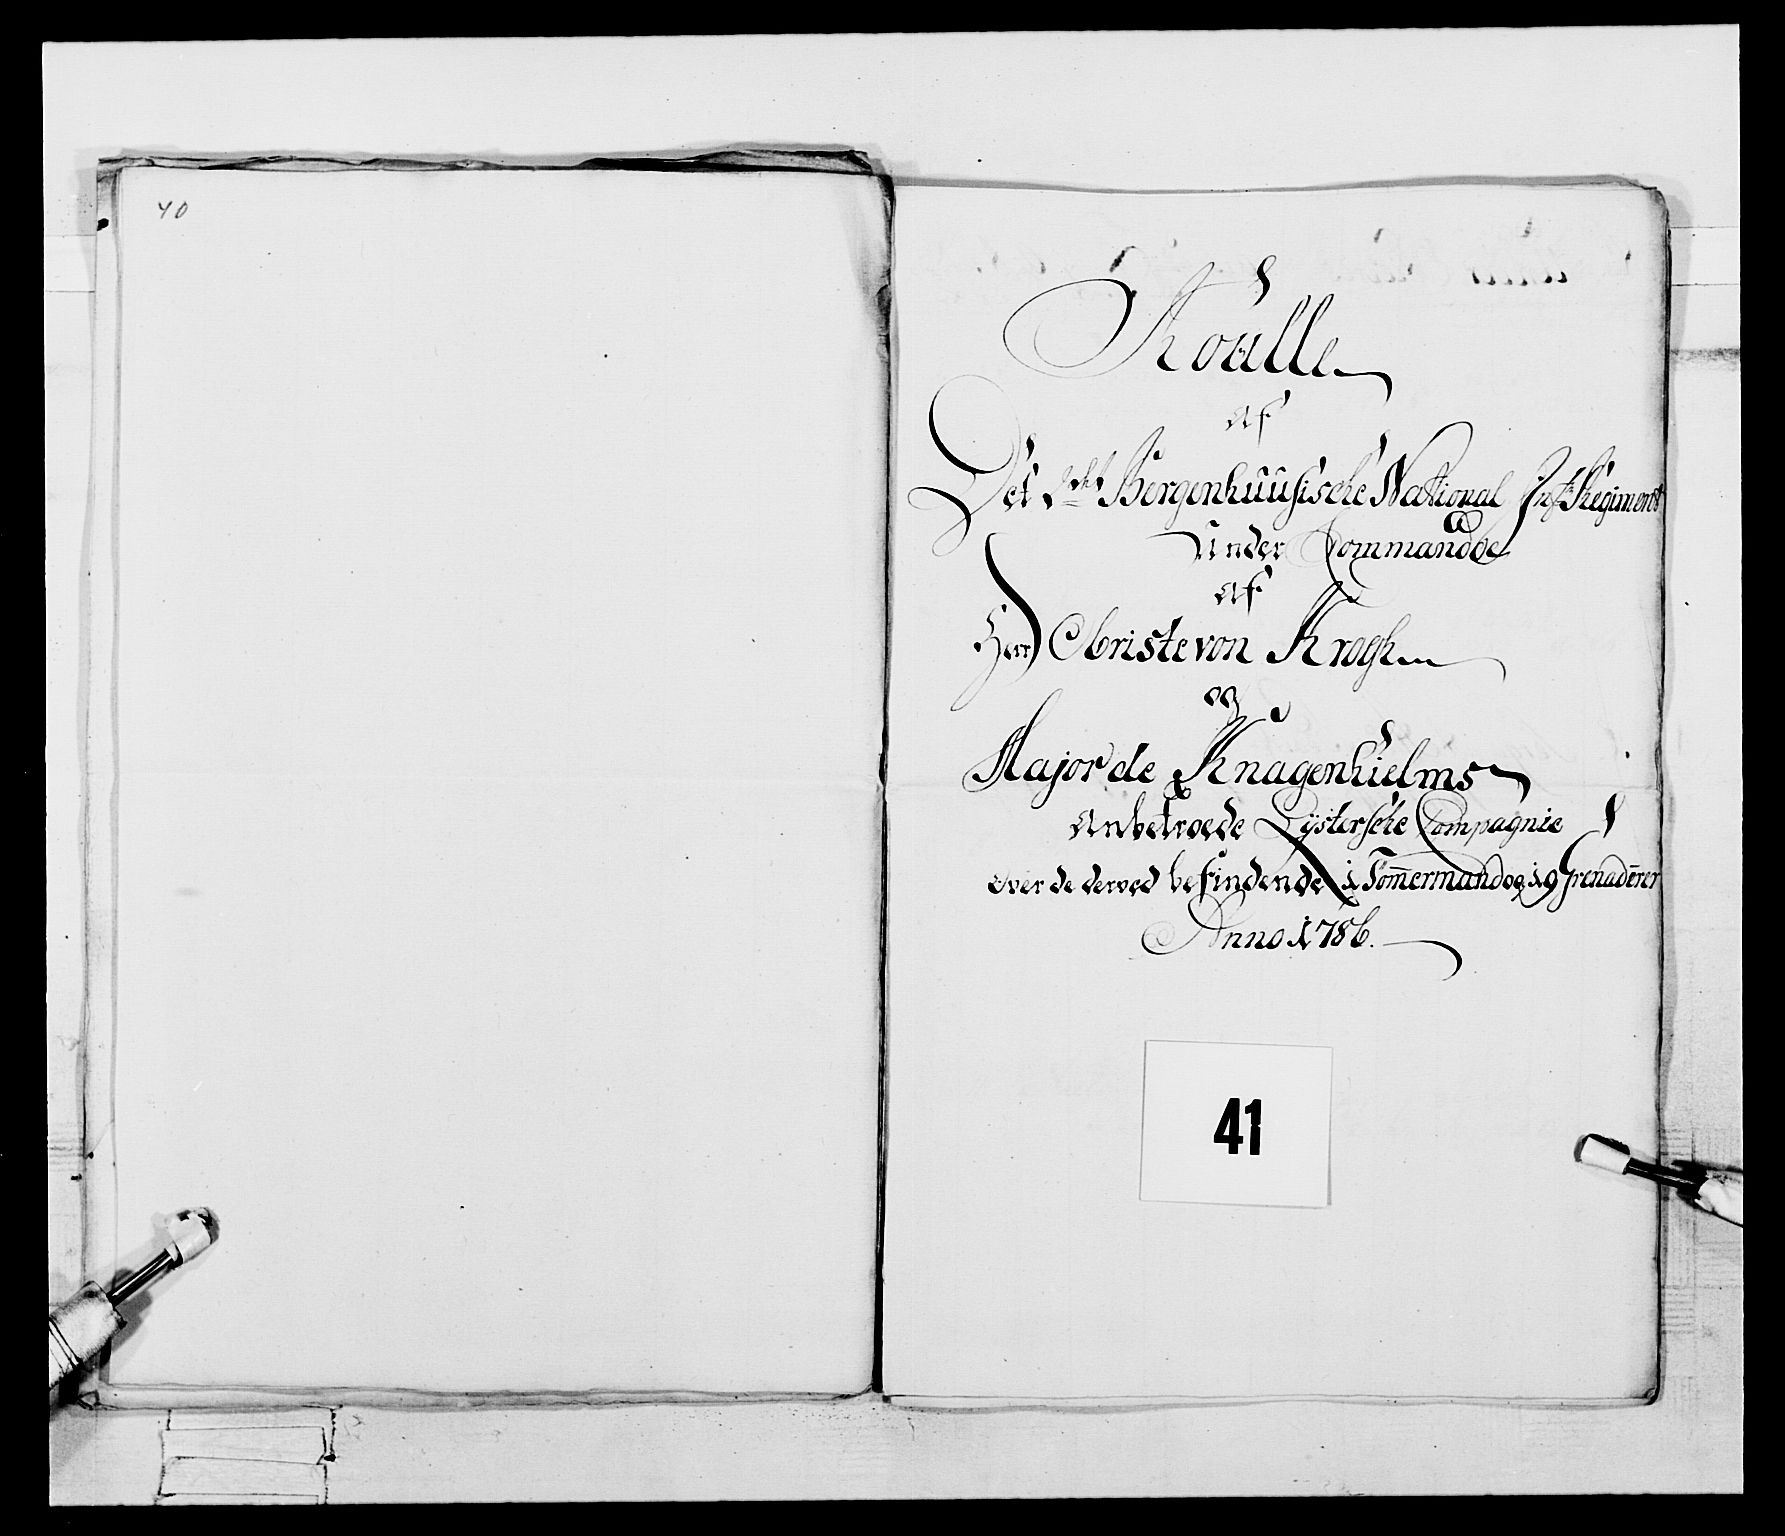 40
Roulle
af
Det 2det Bergenhuusische National Inf: Regiment
Under Commando
af
Herr Obriste von Krogh
og
Major de Knagenhielms
Anbetroede Lystersche Compagnie
over de derved befindende 1 Tom̄ermand og 19 Grenaderer
Anno 1786.
41